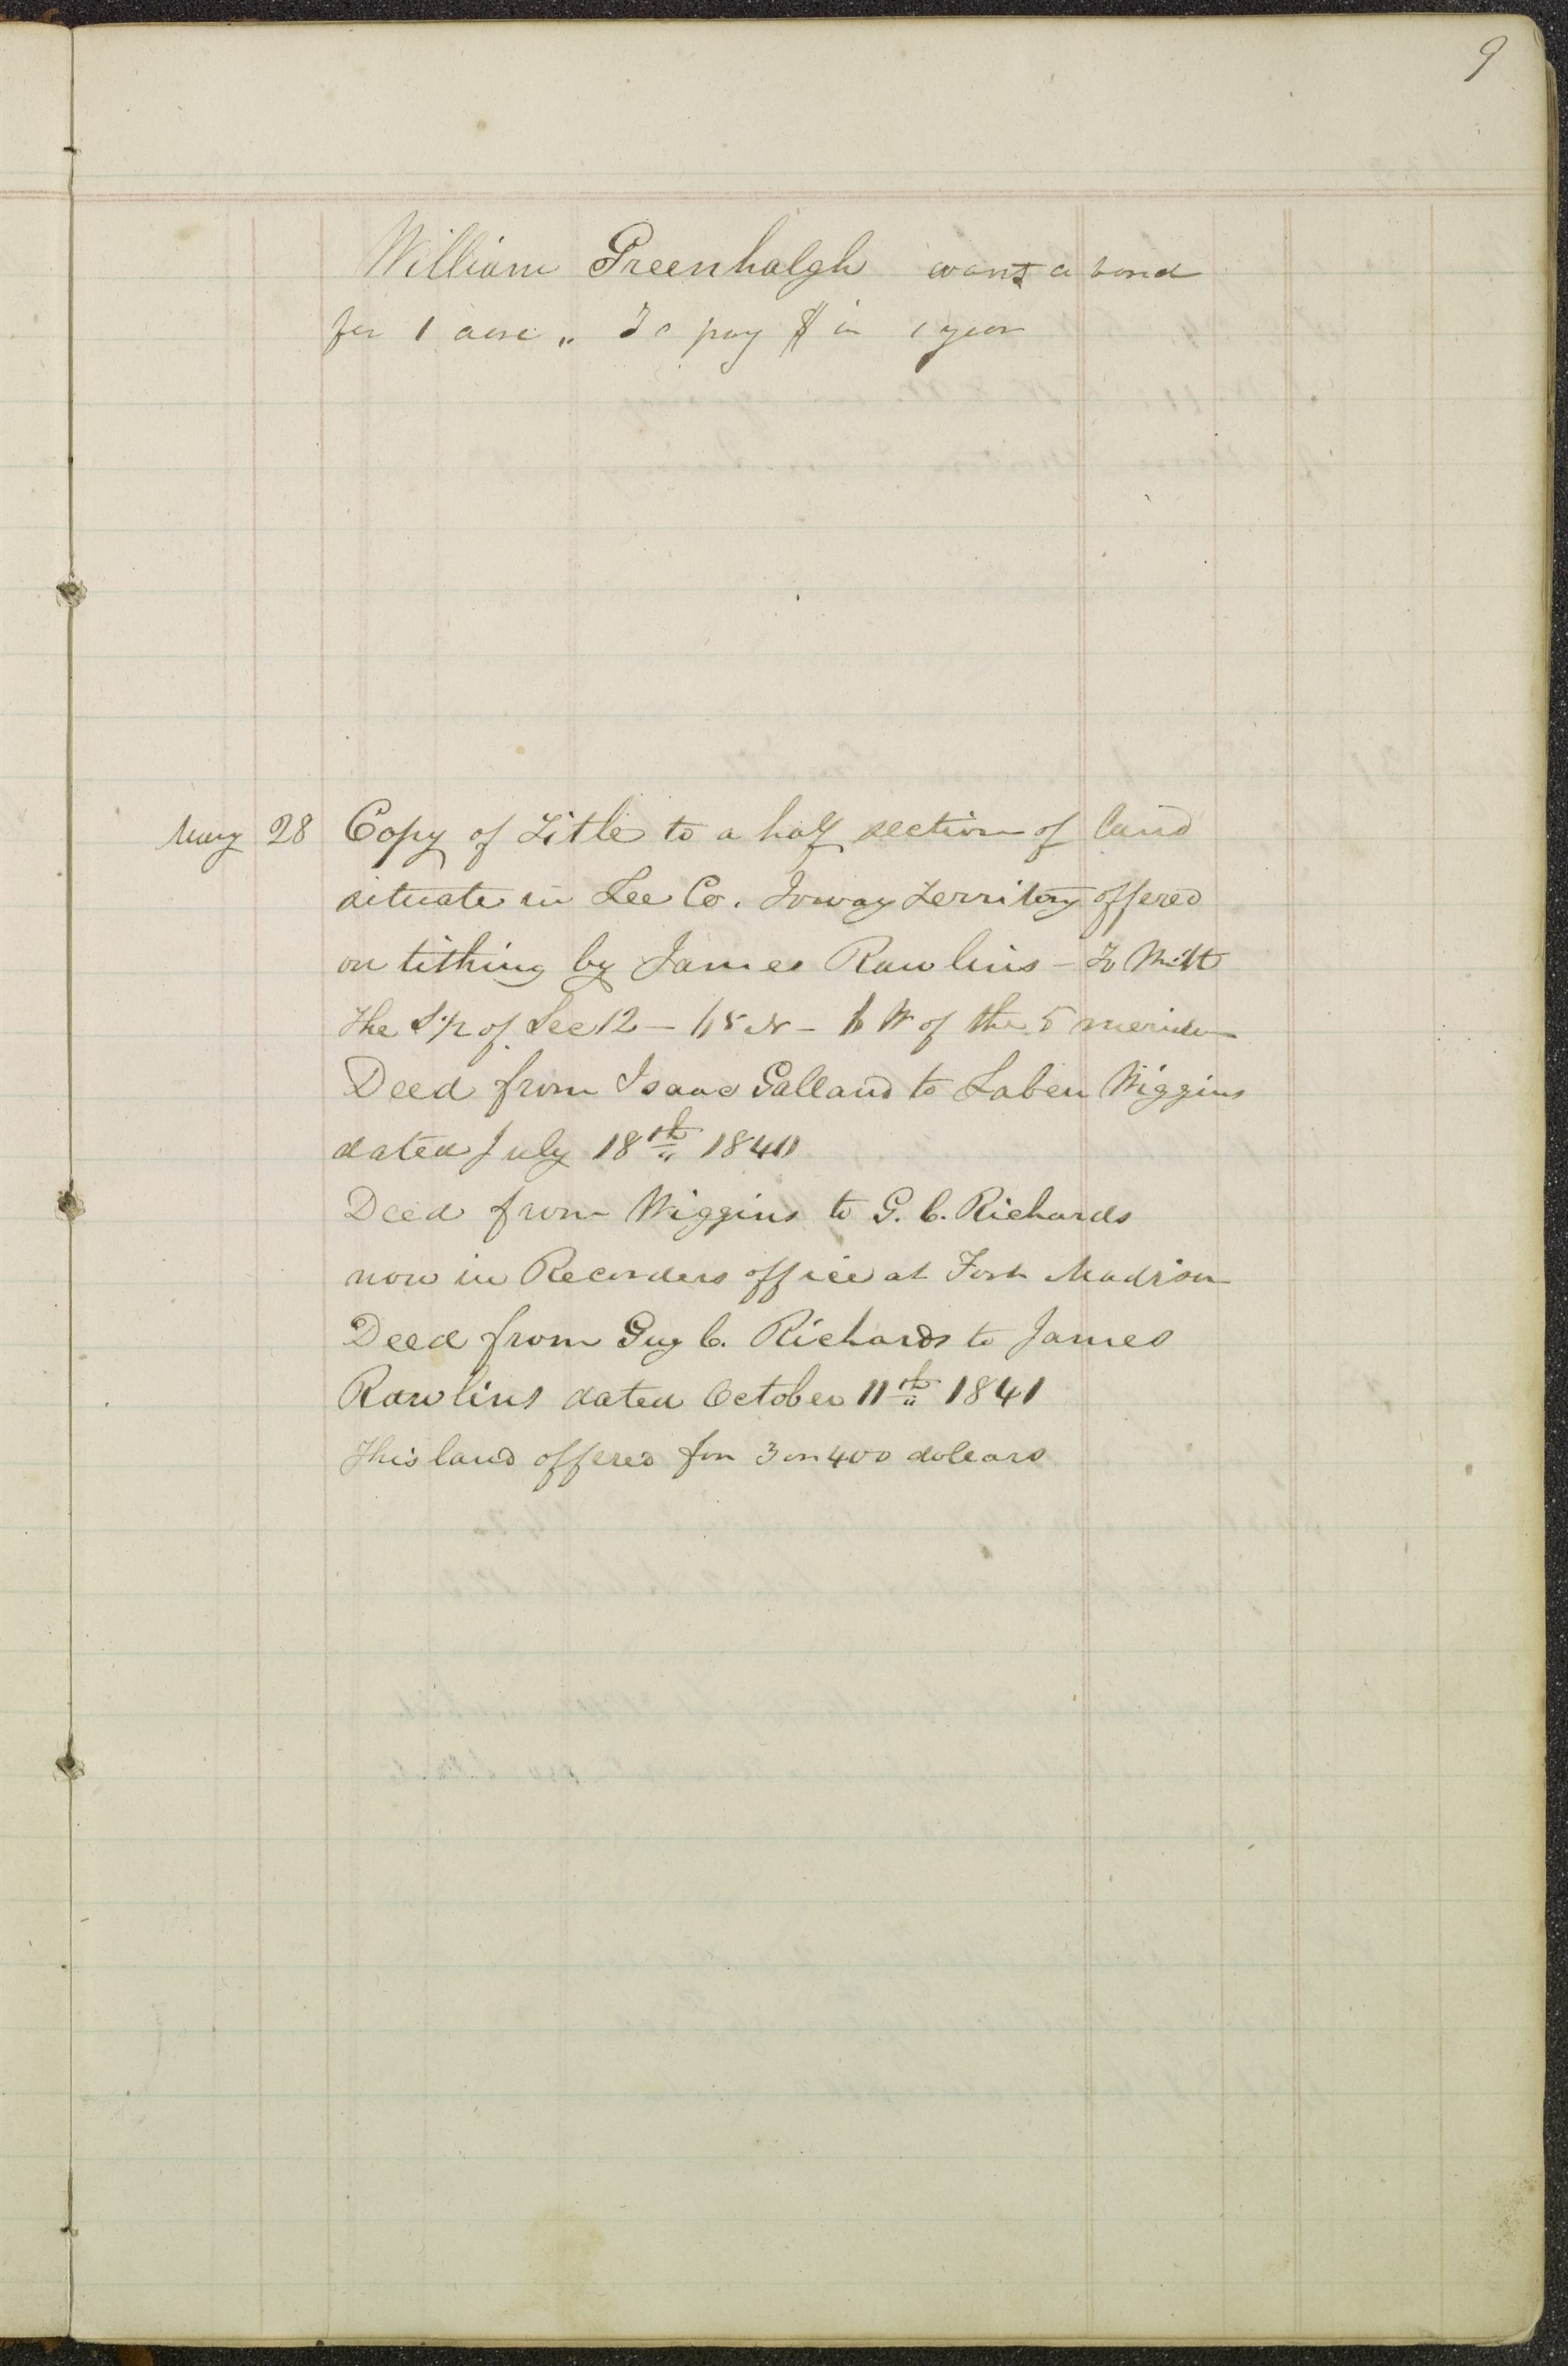 9
William Greenhalgh wants a bond
for 1 acre „ To pay $ in 1 year
May 28 Copy of Title to a half section of land
situate in Lee Co. Ioway Territory offered
on tithing by James Rawlins – To Witt
The S 1/2 of Sec 12 – 65 N – 6 W of the 5 meridn
Deed from Isaac Galland to Laben Wiggins
dated July 18th 1840
Deed from Wiggins to G. C. Richards
now in Recorders office at Fort Madison
Deed from Guy C. Richards to James
Rawlins dated October 11th 1841
This land offered for 3 or 400 dollars